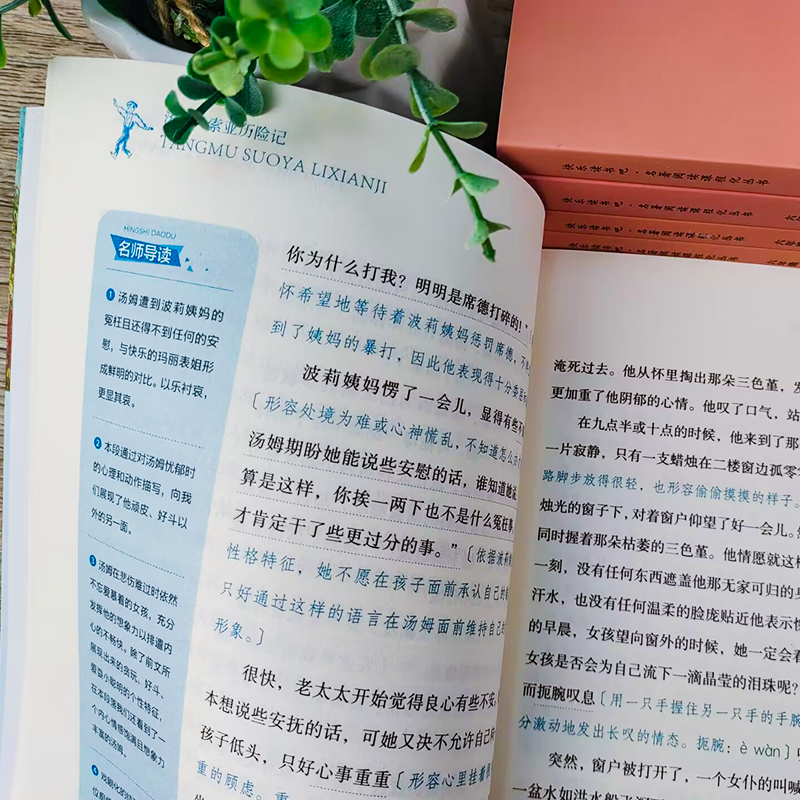 索亚历险记
TANGMU SUOYA LIXIANJI
MINGSHI DAODU
名师导读
1 汤姆遭到波莉姨妈的
冤枉且还得不到任何的安
慰，与快乐的玛丽表姐形
成鲜明的对比。以乐衬哀，
更显其哀。
2 本段通过对汤姆忧郁时
的心理和动作描写，向我
们展现了他顽皮、好斗以
外的另一面。
3 汤姆在悲伤难过时依然
不忘爱慕着的女孩，充分
发挥他的想象力以排遣内
心的不畅快。除了前文所
展现出来的贪玩、好斗、
爱耍小聪明的个性特征，
在本段落我们还看到了一
个内心情感饱满且想象力
丰富的汤姆。
4
你为什么打我？明明是席德打碎的！”
怀希望地等待着波莉姨妈惩罚席德，不
到了姨妈的暴打，因此他表现得十分委屈
波莉姨妈愣了一会儿，显得有些不
〔形容处境为难或心神慌乱，不知道怎么
汤姆期盼她能说些安慰的话，谁知道她说
算是这样，你挨一两下也不是什么冤枉事
才肯定干了些更过分的事。”〔依据波莉
性格特征，她不愿在孩子面前承认自己的
只好通过这样的语言在汤姆面前维持自己的
形象。〕
很快，老太太开始觉得良心有些不安，
本想说些安抚的话，可她又决不允许自己向
孩子低头，只好心事重重〔形容心里挂着
重的顾虑。重
快乐读书吧·名著阅读课程化丛书
快乐读书吧·名著阅读课程化丛书
快乐读书吧·名著阅读课程化丛书
快乐读书吧·名著阅读课程化丛书
淹死过去。他从怀里掏出那朵三色堇，发
更加重了他阴郁的心情。他叹了口气，站
在九点半或十点的时候，他来到了那
一片寂静，只有一支蜡烛在二楼窗边孤零
路脚步放得很轻，也形容偷偷摸摸的样子。
烛光的窗子下，对着窗户仰望了好一会儿。
同时握着那朵枯萎的三色堇。他情愿就这样
一刻，没有任何东西遮盖他那无家可归的身
汗水，也没有任何温柔的脸庞贴近他表示怜
的早晨，女孩望向窗外的时候，她一定会看
女孩是否会为自己流下一滴晶莹的泪珠呢？
而扼腕叹息〔用一只手握住另一只手的手腕
分激动地发出长叹的情态。扼腕：è wàn〕
突然，窗户被打开了，一个女仆的叫喊
一盆水如洪水般飞